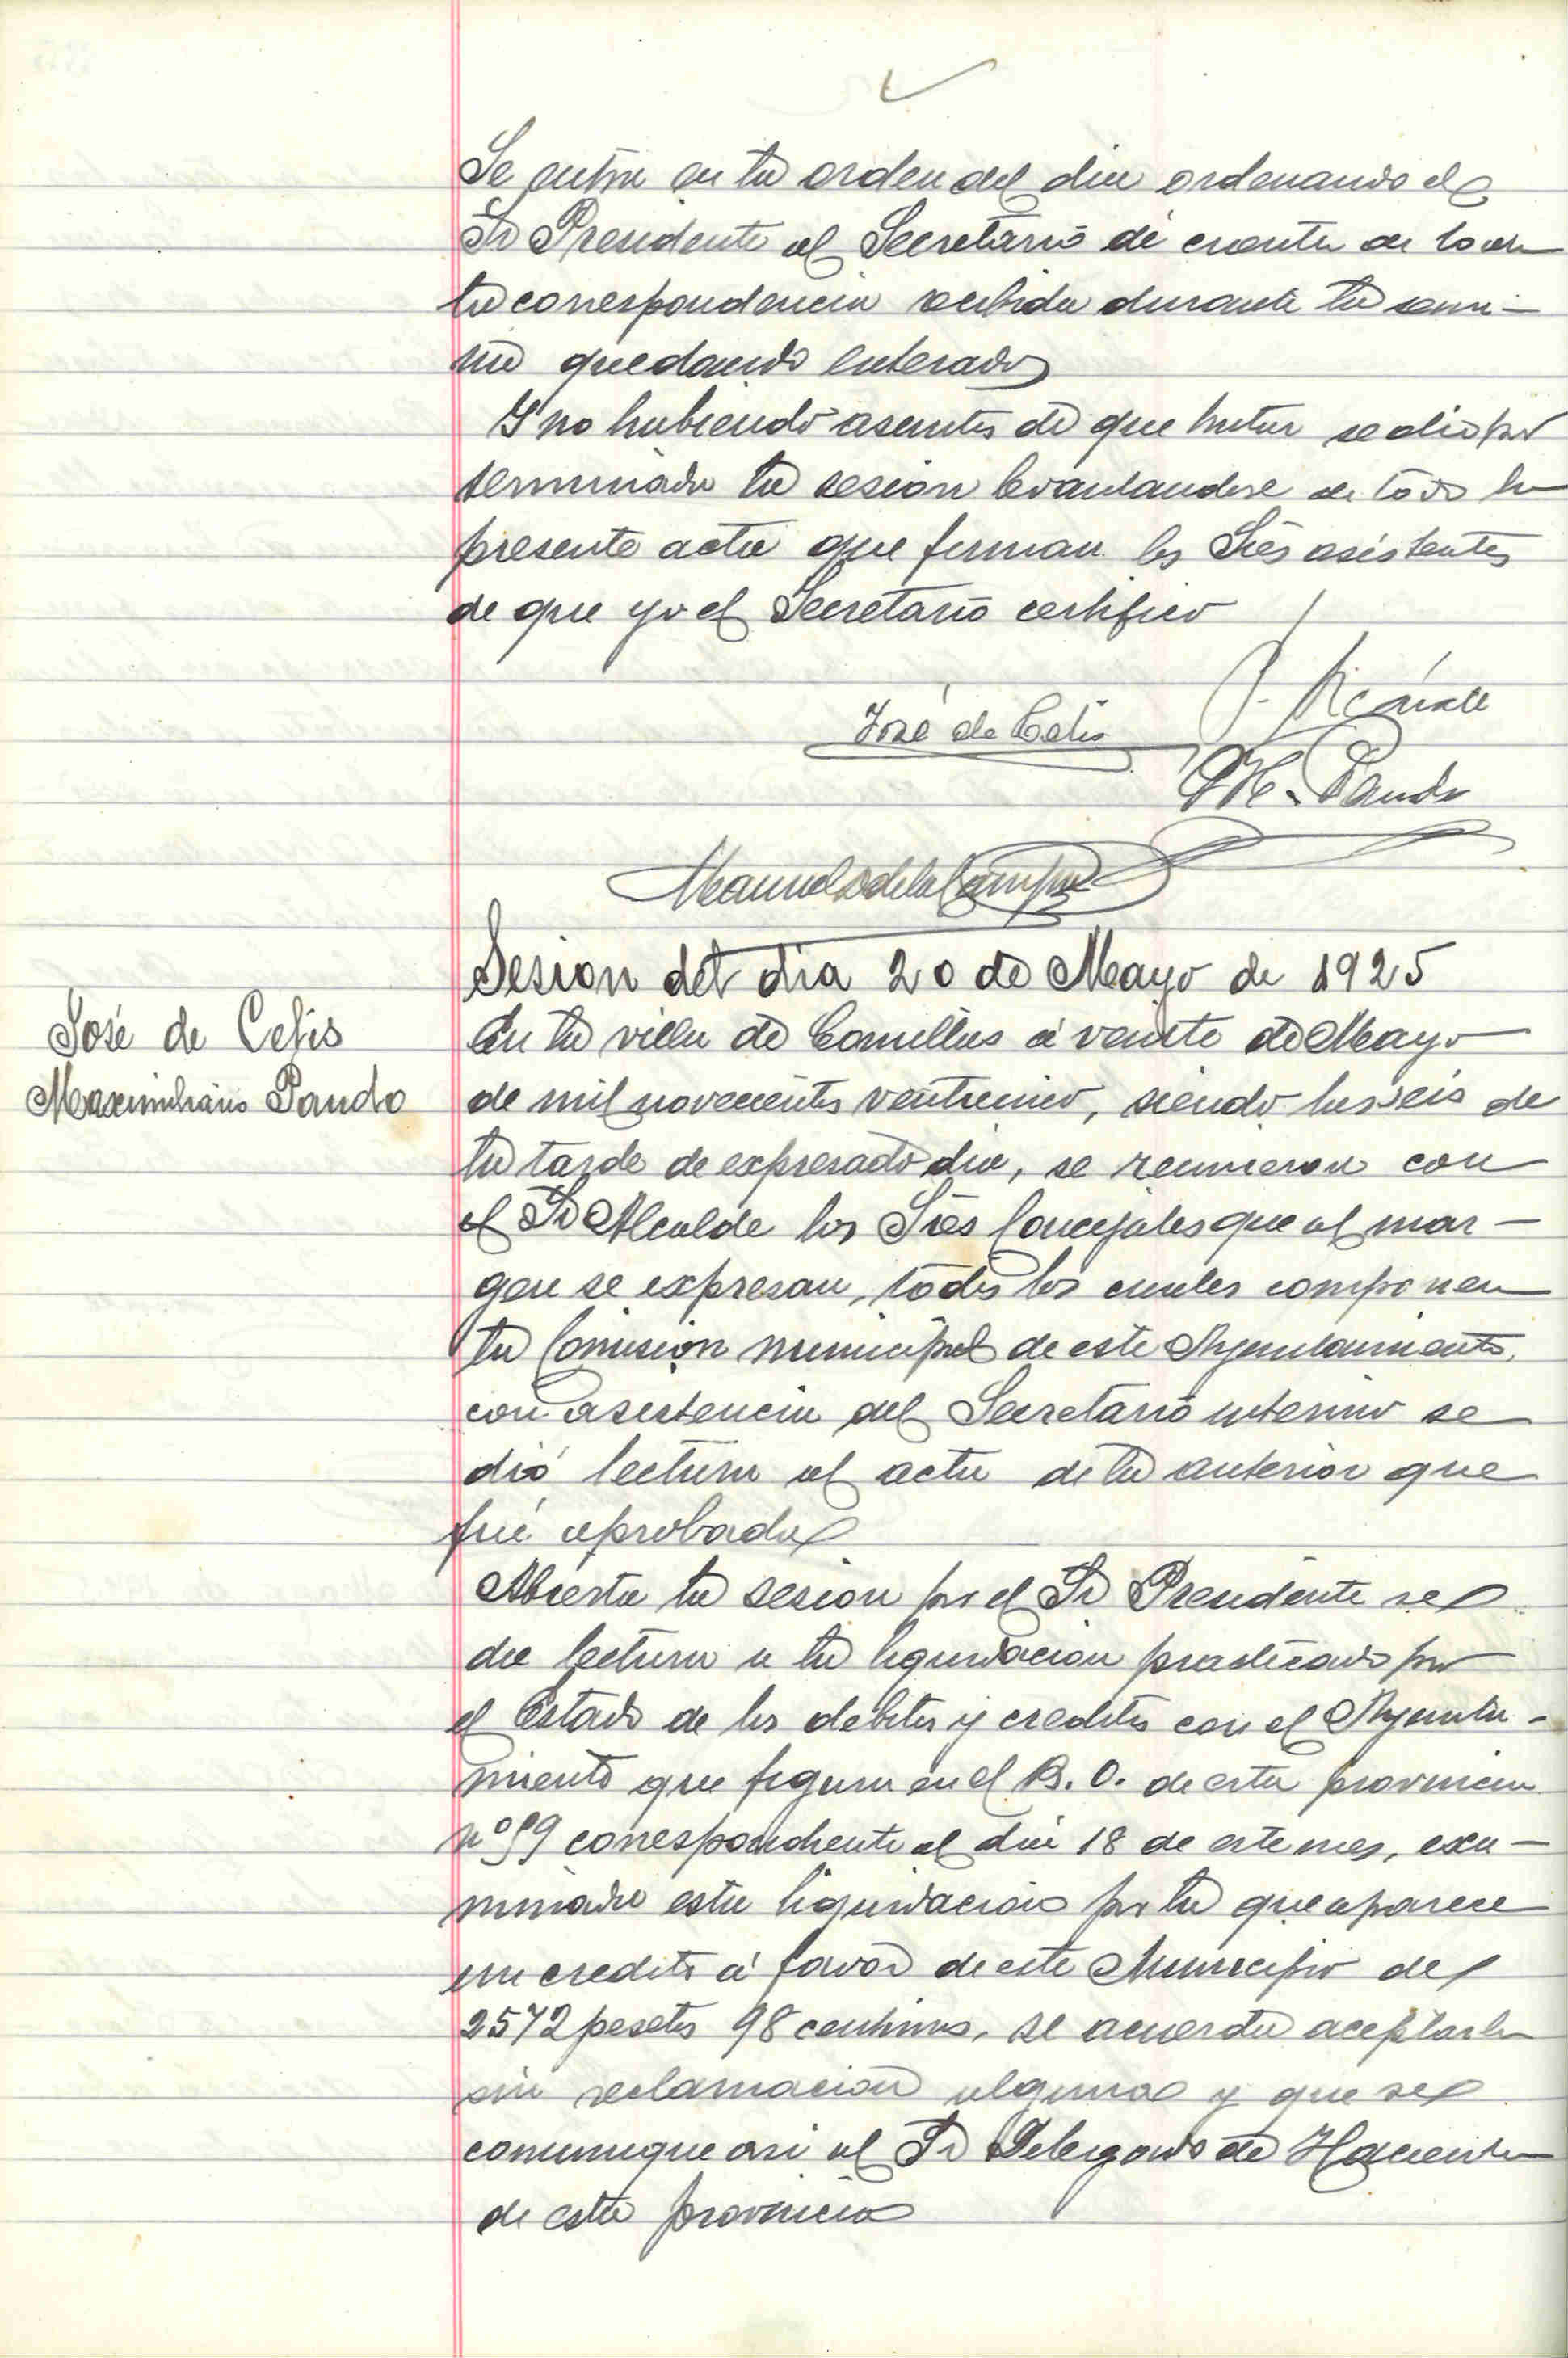 Se entra en la orden del dia ordenando el
Sr Presidente al Secretario dé cuenta de toda
la correspondencia recibida durante la sema-
na quedando enterados
Y no habiendo asuntos de que tratar se dio por
terminada la sesion levantandose de todo la
presente acta que firman los Sres asistentes
de que yo el Secretario certifico
José de Celis
M. Pando
Manuel de la Campa
Sesion del dia 20 de Mayo de 1925
José de Celis
Maximiliano Pando
En la villa de Comillas á veinte de Mayo
de mil novecientos veinticinco, siendo las seis de
la tarde de expresado dia, se reunieron con
el Sr Alcalde los Sres Concejales que al mar-
gen se expresan, todos los cuales componen
la Comision municipal de este Ayuntamiento,
con asistencia del Secretario interino se
dió lectura al acta de la anterior que
fué aprobada
Abierta la sesion por el Sr Presidente se
da lectura a la liquidacion practicada por
el Estado de los debitos y creditos con el Ayunta-
miento que figura en el B. O. de esta provincia
nº 59 correspondiente al dia 18 de este mes, exa-
minada esta liquidacion por la que aparece
un credito á favor de este Municipio de
2572 pesetas 98 centimos, se acuerda aceptarla
sin reclamacion alguna y que se
comunique asi al Sr Delegado de Hacienda
de esta provincia